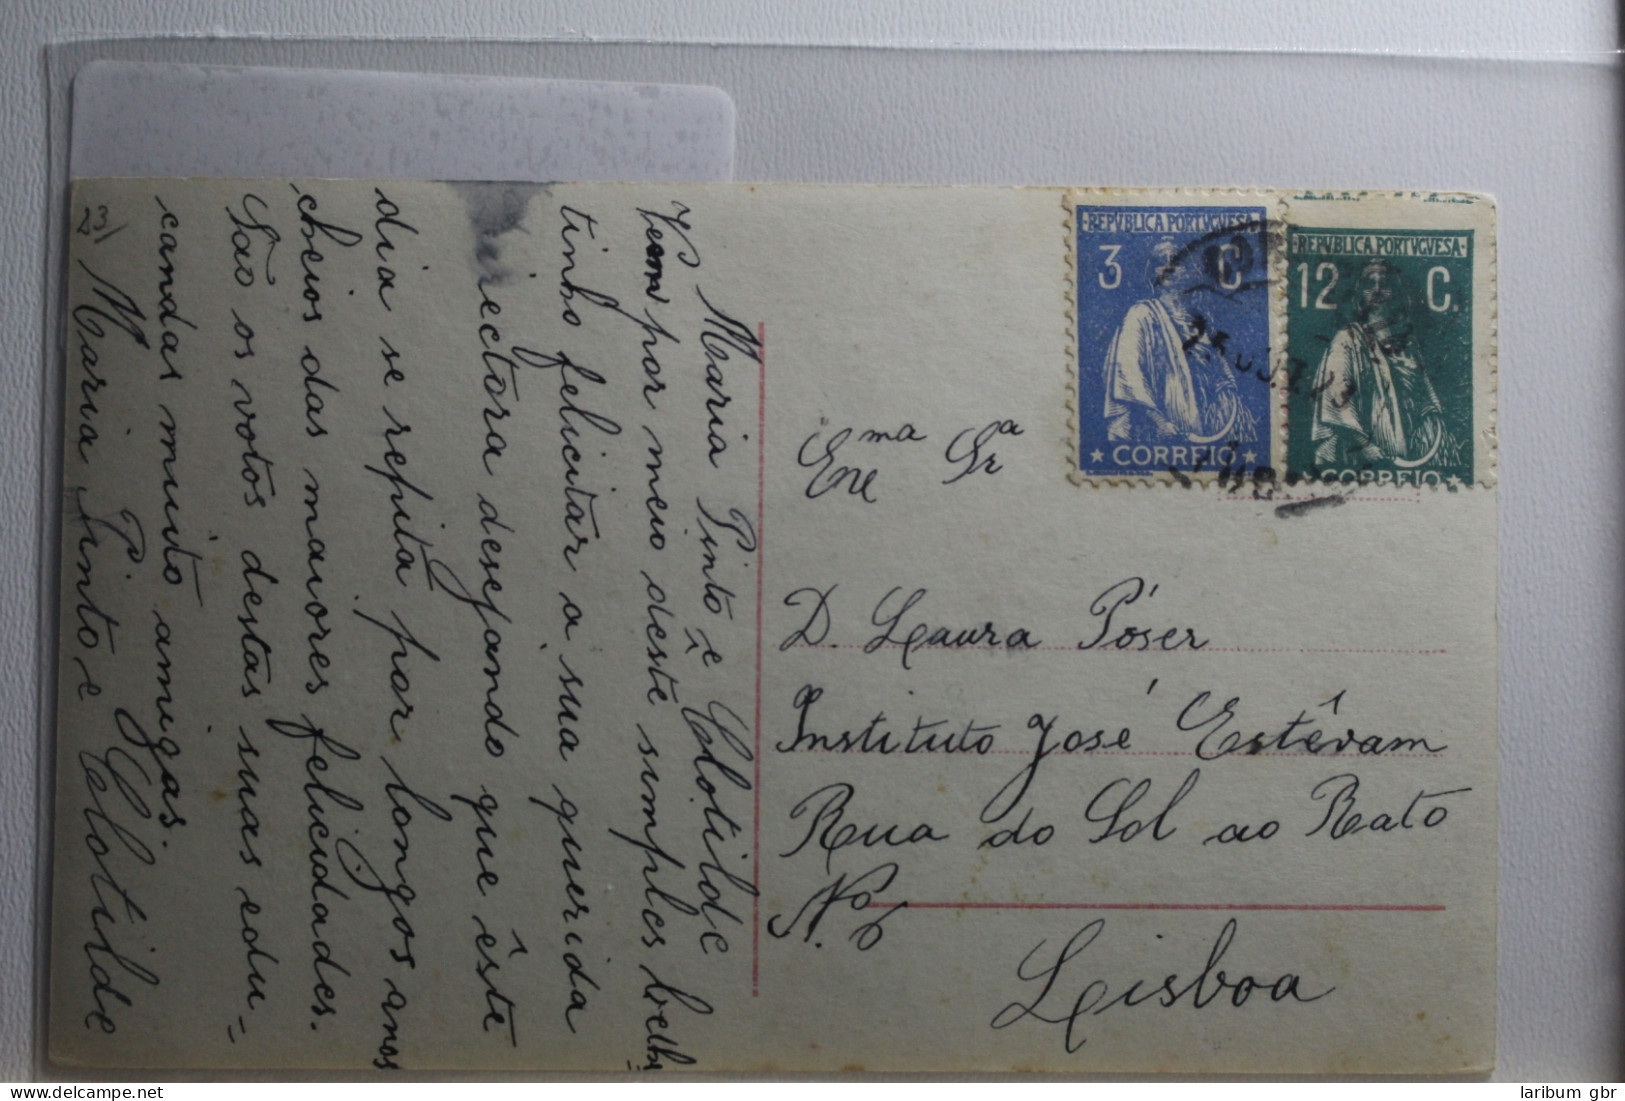 Maria Pinto e Clotilde
Veem por meio deste simples bilhe-
tinho felicitar a sua querida
directora desejando que êste
dia se repita por longos anos
cheios das maiores felicidades.
São os votos destas suas edu-
candas muito amigas.
Maria P. Pinto e Clotilde
23/
REPVBLICA PORTVGVESA
3 C
CORREIO
REPVBLICA PORTVGVESA
12 C.
CORREIO
25 OUT 23
Exma Sra
D. Laura Póser
Instituto José Estêvam
Rua do Sol ao Rato
No. 6
Lisboa
laribum gbr